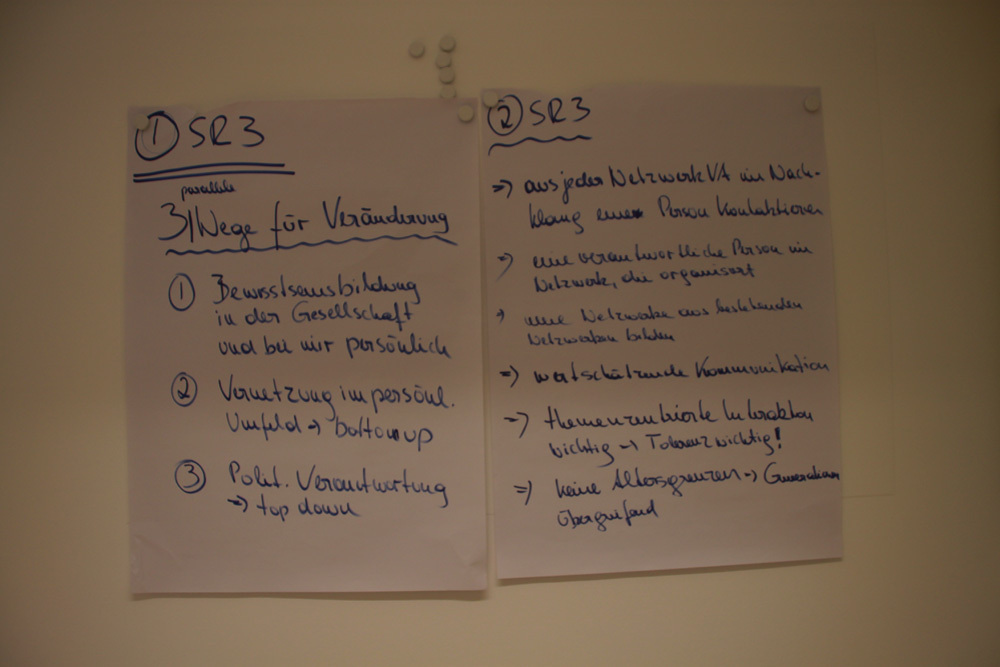 ① SR3
parallele
3 Wege für Veränderung
① Bewusstseinsbildung
in der Gesellschaft
und bei mir persönlich
② Vernetzung im persönl.
Umfeld → bottom up
③ Polit. Verantwortung
→ top down
② SR3
=> aus jeder Netzwerk VA im Nach-
klang eine Person kontaktieren
=> eine verantwortliche Person im
Netzwerk, die organisiert
=> neue Netzwerke aus bestehenden
Netzwerken bilden
=> wertschätzende Kommunikation
=> themenzentrierte Interaktion
wichtig → Toleranz wichtig!
=> keine Altersgrenzen → Generationen
übergreifend